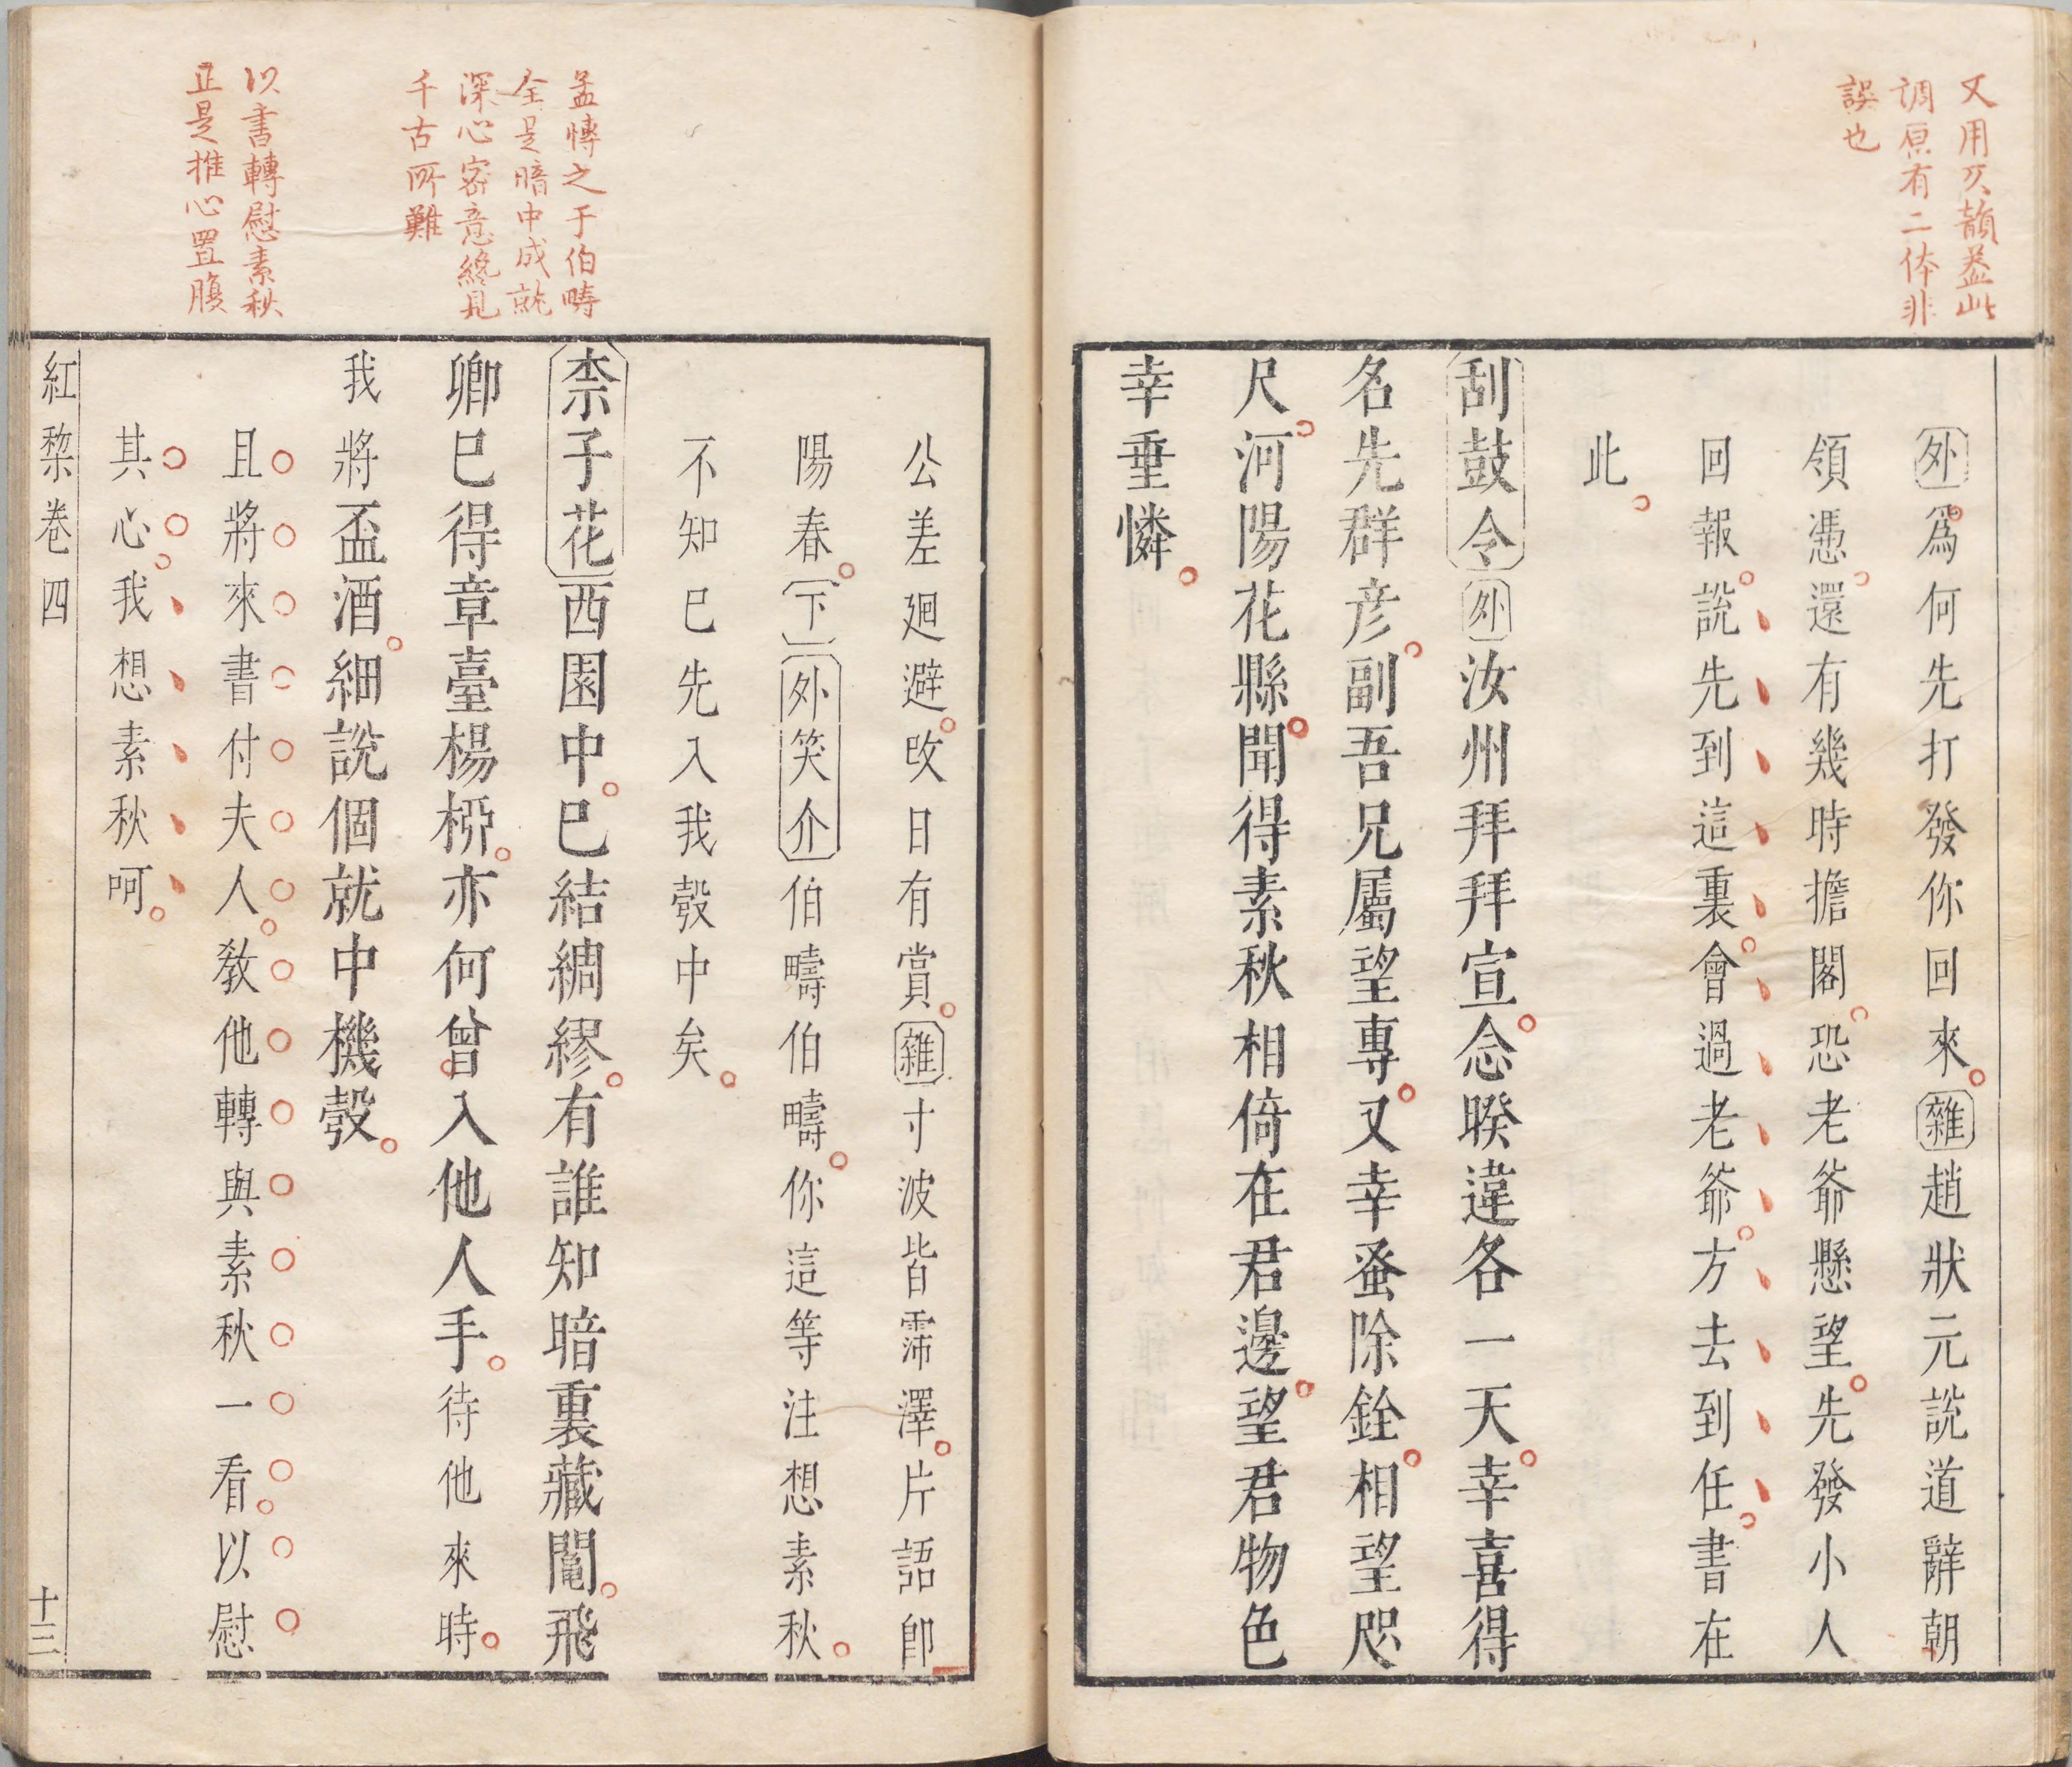 又用仄韻蓋此
調原有二体非
誤也
外爲何先打發你回來。雜趙狀元說道辭朝
領憑。還有幾時擔閣。恐老爺懸望。先發小人
回報。說先到這裏。會過老爺。方去到任。書在
此。
刮鼓令外汝州拜拜宣。念暌違各一天。幸喜得
名先群彦。副吾兄屬望專。又幸蚤除銓。相望咫
尺。河陽花縣。聞得素秋相倚在君邊。望君物色
幸垂憐。
孟慱之于伯疇
全是暗中成就
深心密意終見
千古所難
以書轉慰素秋
正是推心置腹
公差廻避。改日有賞。雜寸波皆霈澤。片語卽
陽春。下外笑介伯疇伯疇。你這等注想素秋。
不知已先入我彀中矣。
柰子花西園中。已結綢繆。有誰知暗裏藏鬮。飛
卿已得章臺楊柳。亦何曾入他人手。待他來時。
我將盃酒。細說個就中機彀。
且將來書付夫人。教他轉與素秋一看。以慰
其心。我想素秋呵。
紅棃卷四
十三